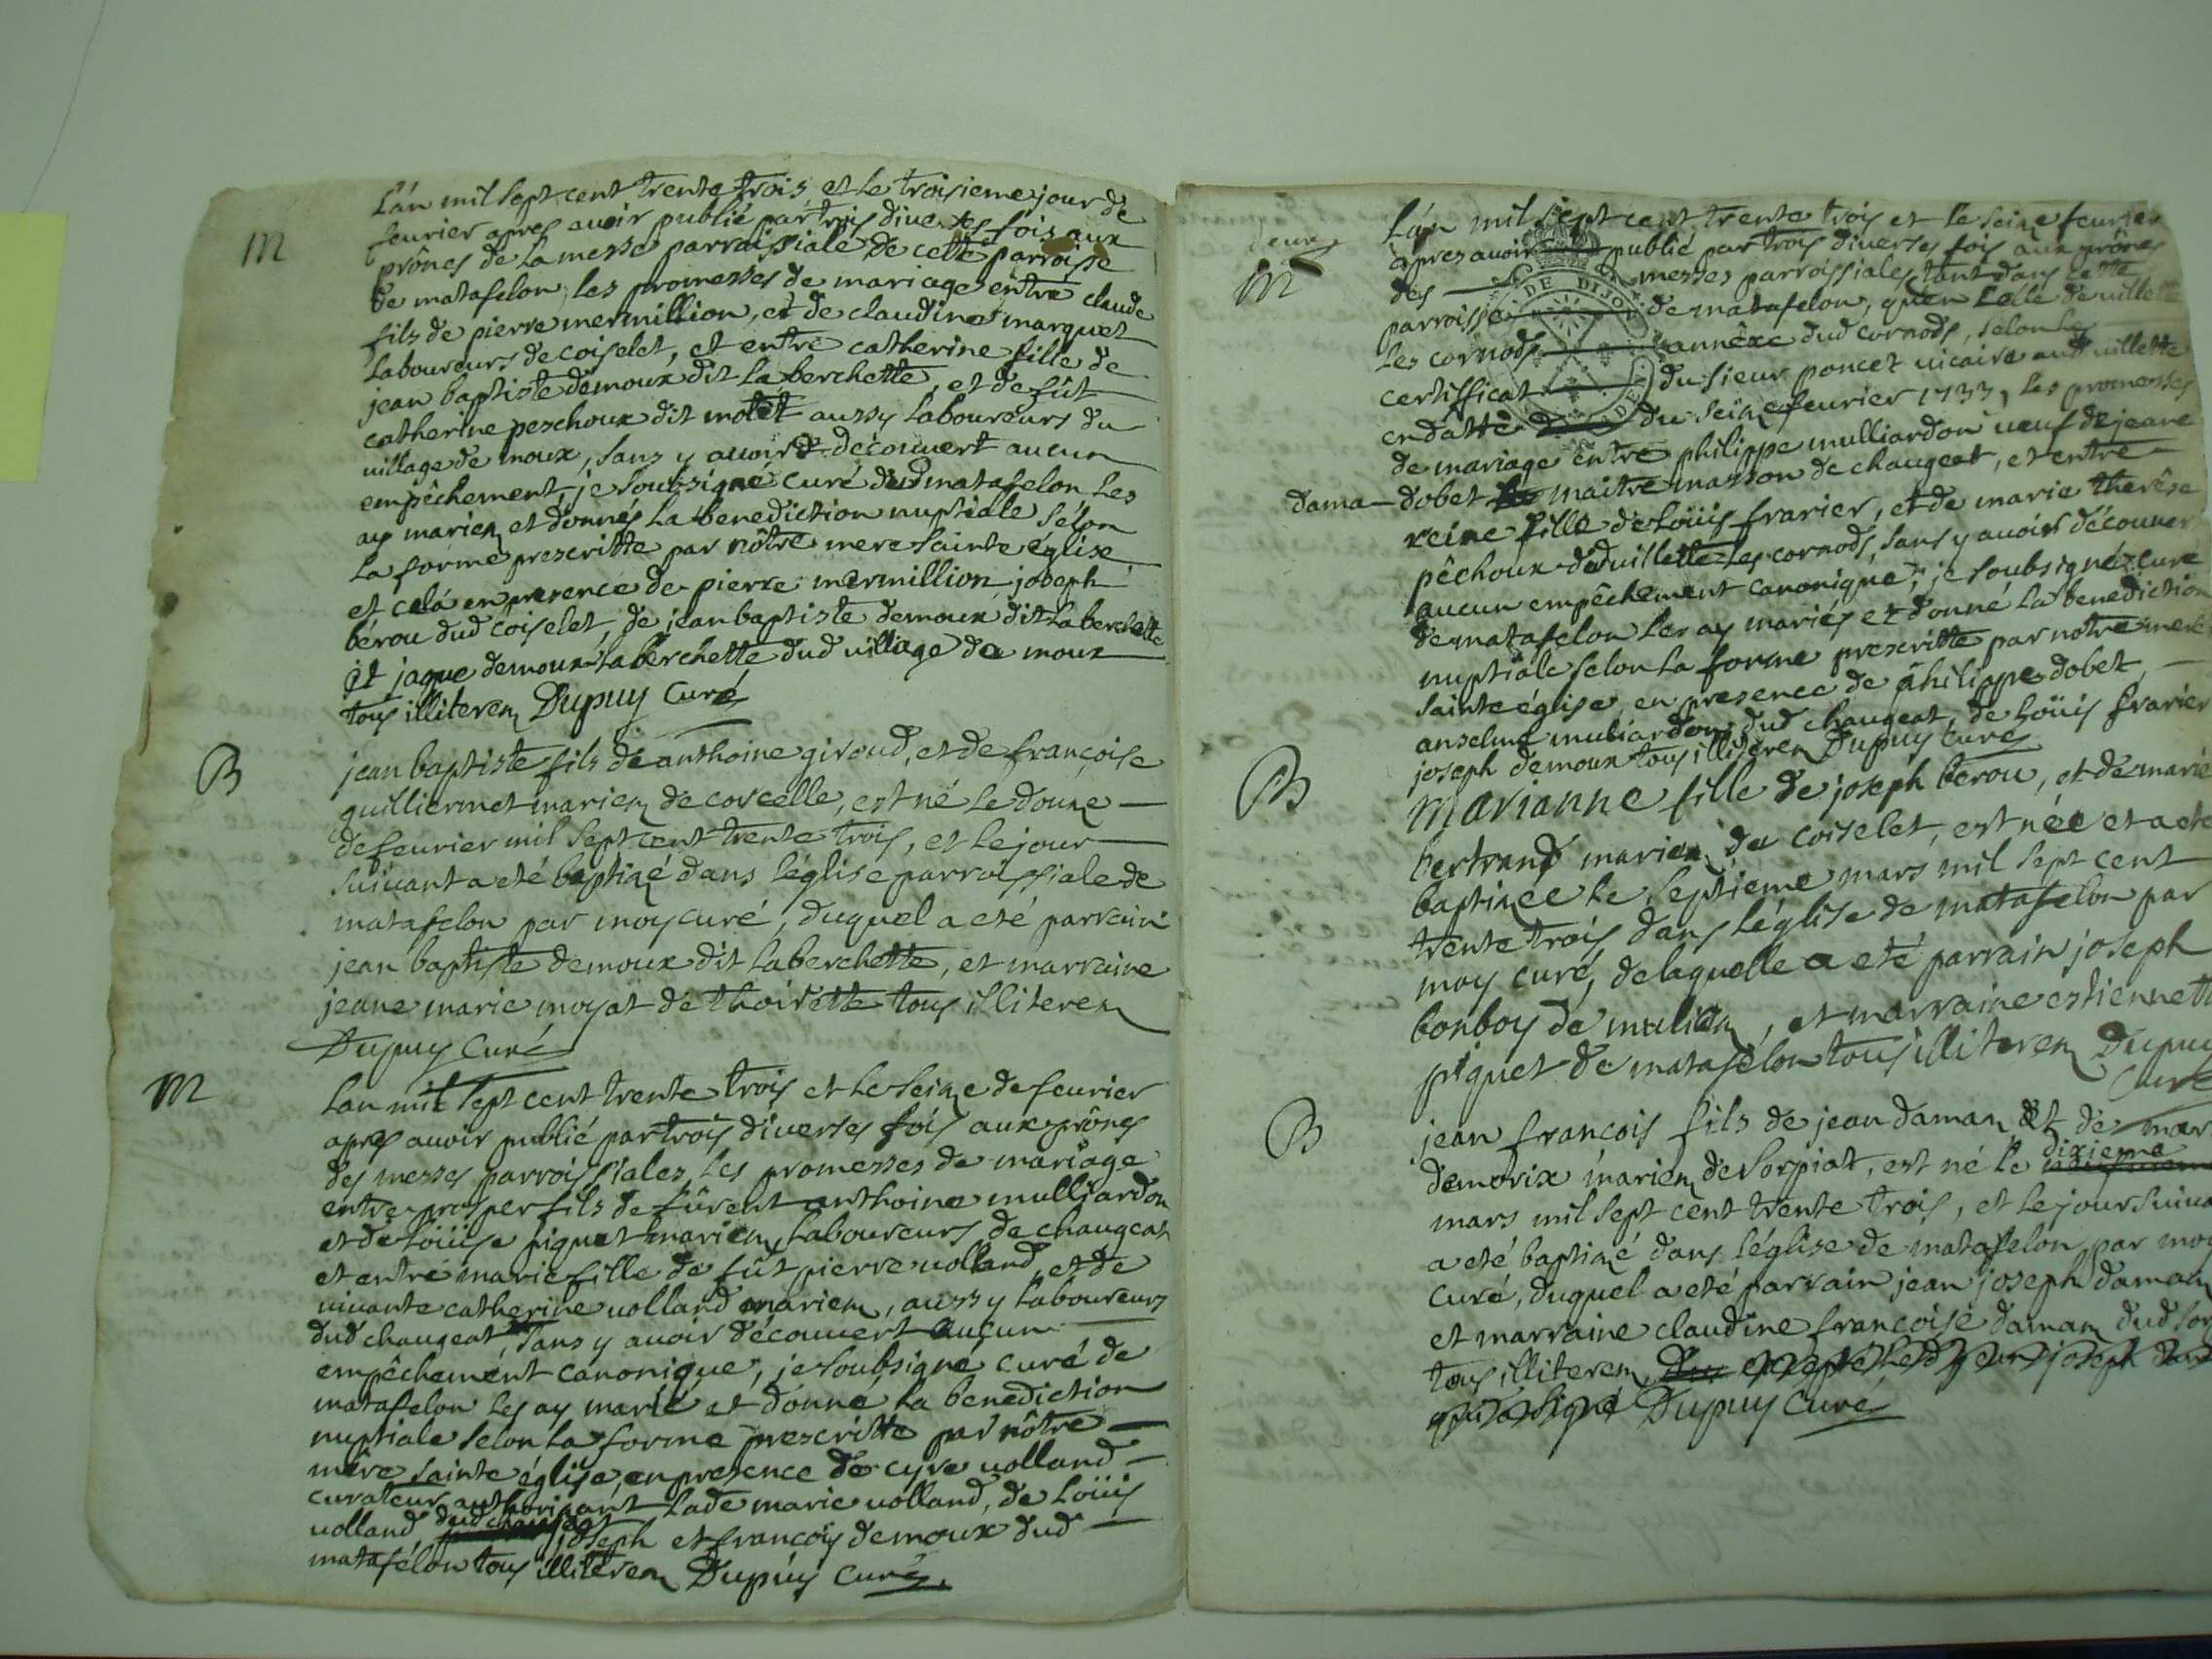 L'an mil sept cent trente trois et le troisieme jour de
m
feurier apres auoir publié par trois diuerses fois aux
prônes de la messe parroissiale de cette parroisse
de matafelon, les promesses de mariage entre claude
fils de pierre mermillion, et de claudine marquet
laboureurs de coiselet, et entre catherine fille de
jean baptiste demoux dit la berchette, et de fût
catherine peschoux dit molet aussy laboureurs du
uillage de moux, sans y auoir découuert aucun
empêchement, je soubsigné curé dud matafelon les
ay mariez et donnés la benediction nuptiale sélon
la forme prescritte par nôtre mere sainte église
et cela en presence de pierre mermillion joseph
bérou dud coiselet, de jean baptiste demoux dit la berchette
et jaque demoux la berchette dud uillage de moux
tous illiterez Dupuy Curé
B
jean baptiste fils de anthoine giroud, et de françoise
guilliermet mariez de corcelle, est né le douze
de feurier mil sept cent trente trois, et le jour
suiuant a eté baptizé dans l'église parroissiale de
matafelon par moy curé, duquel a eté parrain
jean baptiste demoux dit la berchette, et marraine
jeane marie moyat de thoirette tous illiterez
Dupuy Curé
m
Lan mil sept cent trente trois et le seize de feurier
apres auoir publié par trois diuerses fois aux prônes
des messes parroissiales, les promesses de mariage
entre prosper fils de fûrent anthoine mulliardon
et de loüise piquet mariez laboureurs de chaugeat
et entre marie fille de fût pierre uolland, et de
uiuante catherine uolland mariez, aussy laboureurs
dud chaugeat, sans y auoir découuert aucun
empêchement canonique, je soubsigné curé de
matafelon les ay marié et donné la benediction
nuptiale selon la forme prescritte par nôtre
mère sainte église, en presence de cyre uolland
curateur authorizant lade marie uolland, de loüis
uolland, dud chaugeat joseph et françois demoux dud
matafélon tous illiterez Dupuy Curé.
L'an mil sept cent trente trois et le seize feurier
deux
m
apres auoir publié par trois diuerses fois aux prônes
des messes parroissiales, tant dans cette
parroisse de matafelon, qu'en celle de uillette
les cornods annêxe dud cornods, selon le
certifficat du sieur poncet uicaire aud uillette
en datte du seize feurier 1733, les promesses
de mariage entre philippe mulliardon ueuf de jeane
dama dobet maitre masson de chaugeat, et entre
reine fille de loüis frarier, et de marie therêse
pêchoux dud uillette les cornods, sans y auoir découuer
aucun empêchement canonique, je soubsigné curé
de matafelon les ay mariés et donné la benediction
nuptiale selon la forme prescritte par notre mere
sainte église, en presence de philippe dobet
anselme muliardon dud chaugeat, de loüis frarier
joseph demoux tous illiterez Dupuy Curé
B
Marianne fille de joseph berou, et de marie
bertrand mariez de coiselet, est née et a eté
baptizée le septieme mars mil sept cent
trente trois dans l'église de matafelon par
moy curé, de laquelle a eté parrain joseph
bonboy de muliez, et marraine estiennette
piquet de matafelon tous illiterez Dupuy
Curé
B
jean francois fils de jean damaz et de mar
demorix mariez de sorpiat, est né le dixieme
mars mil sept cent trente trois, et le jour suiua
a eté baptizé dans l'église de matafelon par moy
curé, duquel a eté parrain jean joseph damaz
et marraine claudine françoise damaz dud sor
tous illiterez
Dupuy Curé
DE DIJON